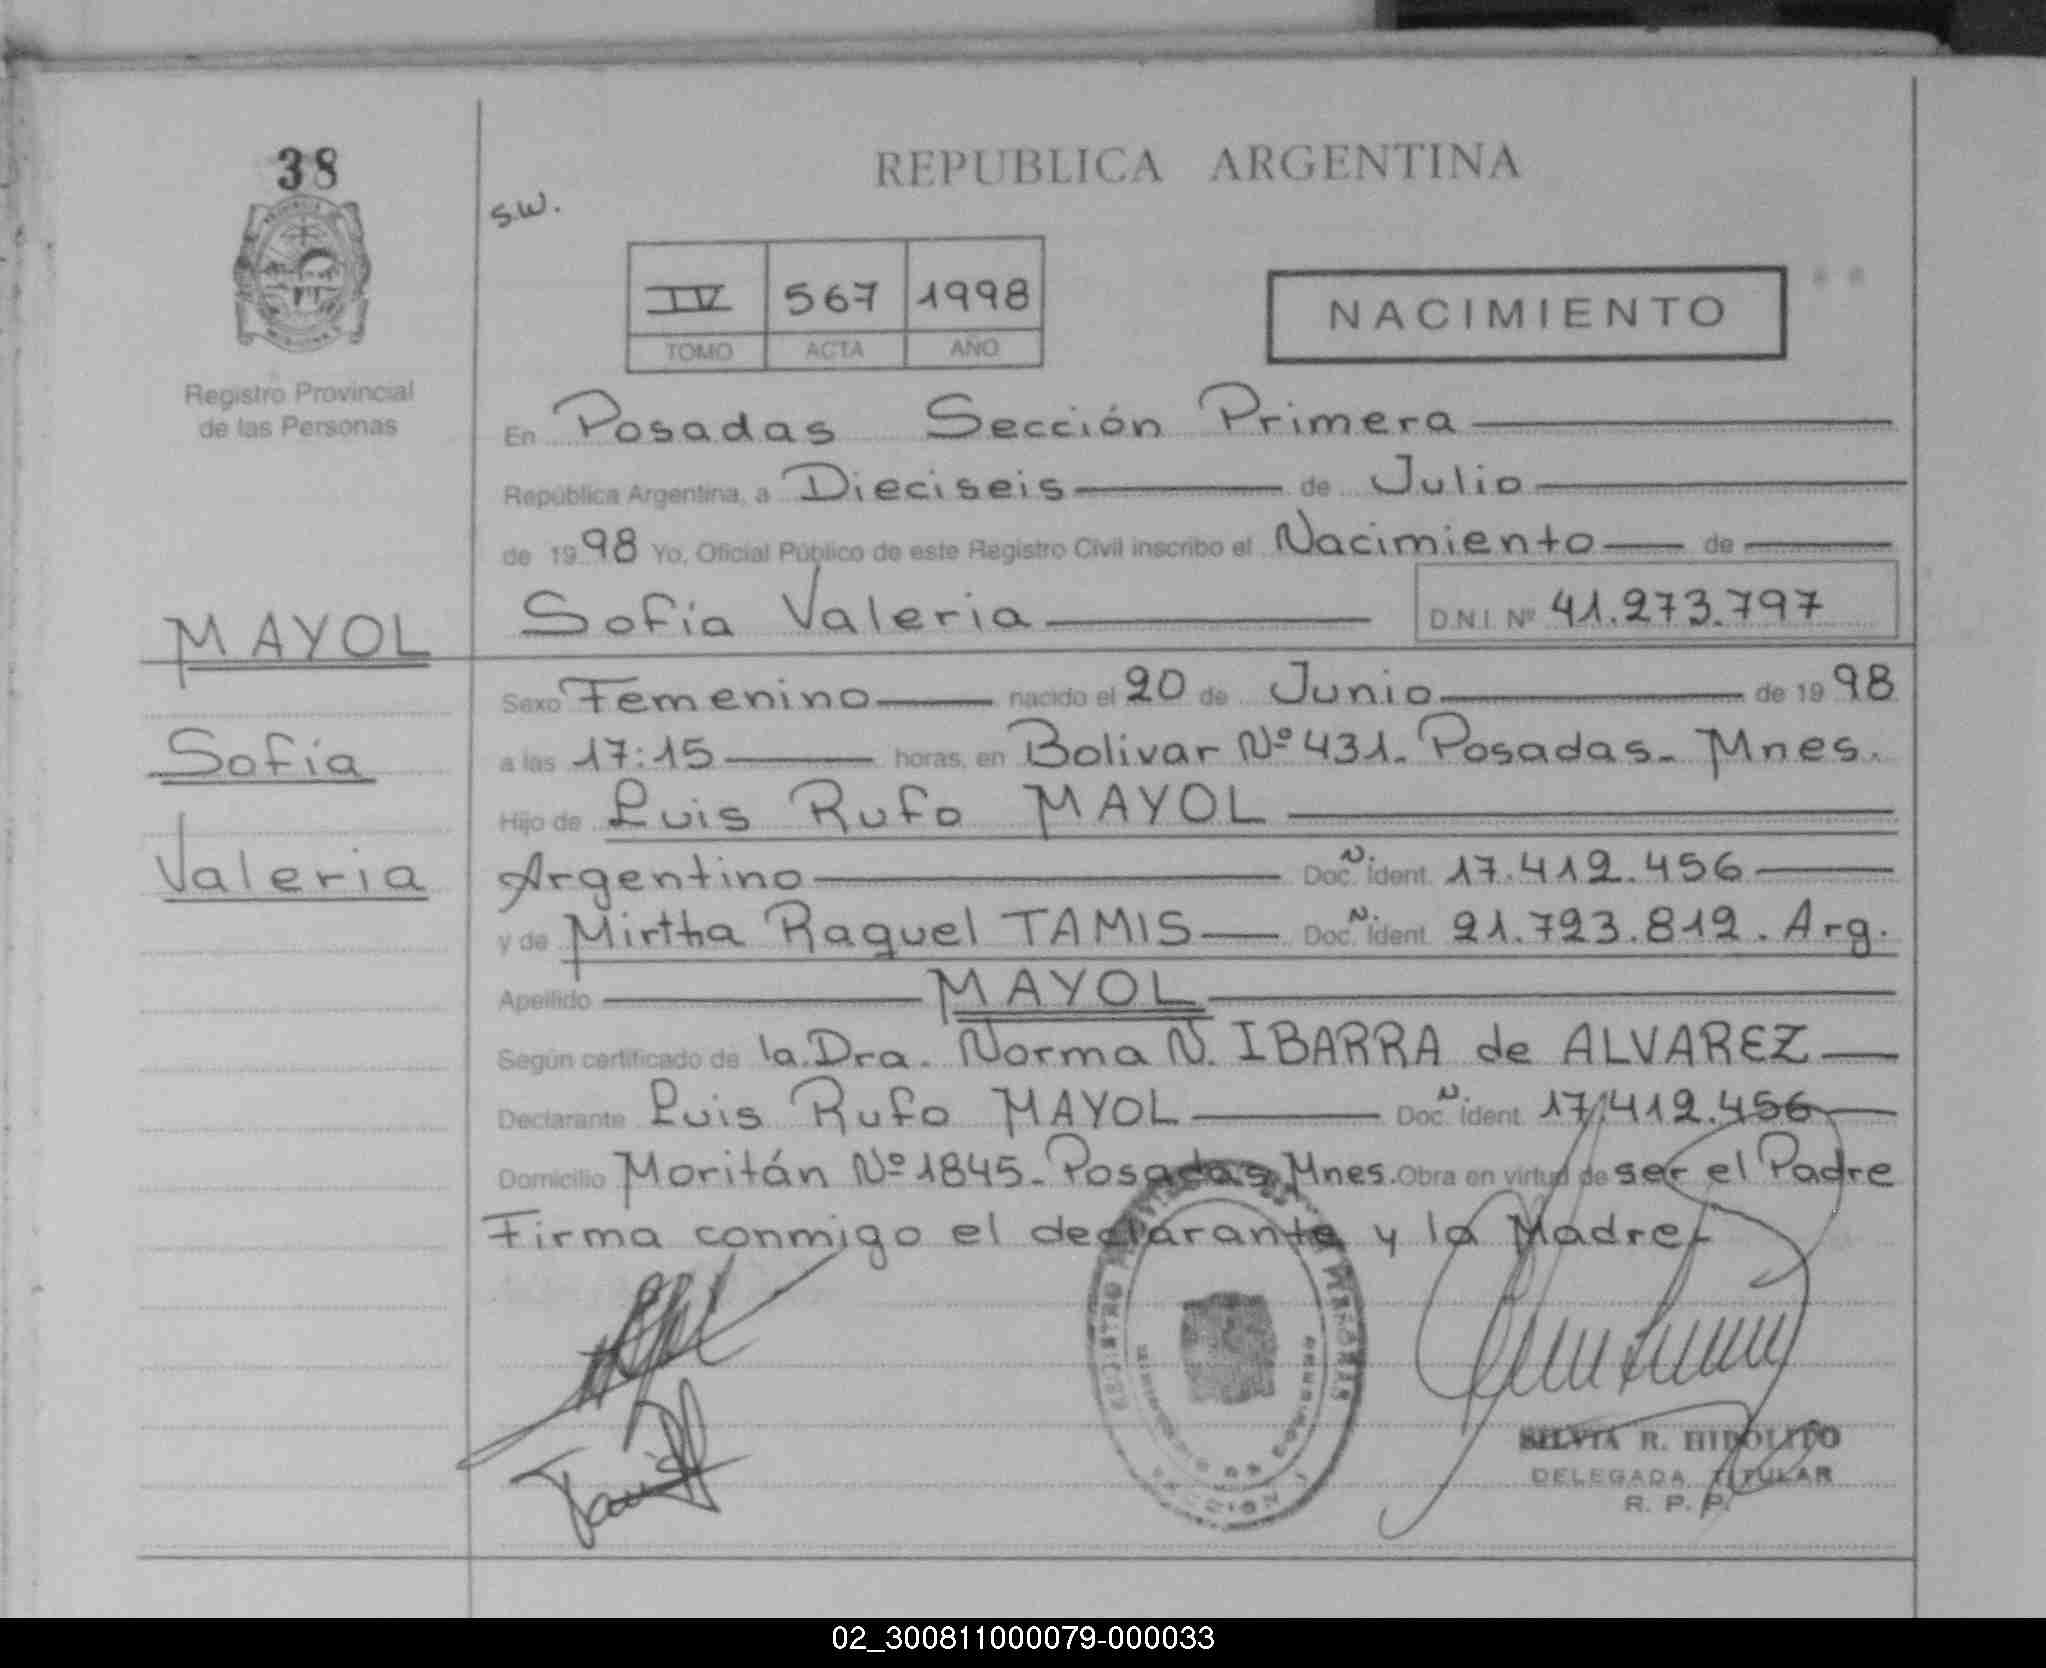 38
Registro Provincial
de las Personas
REPUBLICA ARGENTINA
S.W.
IV 567 1998
TOMO ACTA AÑO
NACIMIENTO
En Posadas Sección Primera
República Argentina, a Dieciseis de Julio
de 1998 Yo, Oficial Público de este Registro Civil inscribo el Nacimiento de
Sofía Valeria D.N.I. Nº 41.273.797
MAYOL
Sofía
Valeria
Sexo Femenino nacido el 20 de Junio de 1998
a las 17:15 horas, en Bolivar Nº 431. Posadas- Mnes.
Hijo de Luis Rufo MAYOL
Argentino Doc. Ident. 17.412.456
y de Mirtha Raquel TAMIS Doc. Ident. 21.723.812. Arg.
Apellido MAYOL
Según certificado de la Dra. Norma N. IBARRA de ALVAREZ
Declarante Luis Rufo MAYOL Doc. Ident. 17.412.456
Domicilio Moritán Nº 1845- Posadas Mnes. Obra en virtud de ser el Padre
Firma conmigo el declarante y la Madre-
SILVIA R. HIPOLITO
DELEGADA TITULAR
R. P. P.
02_300811000079-000033